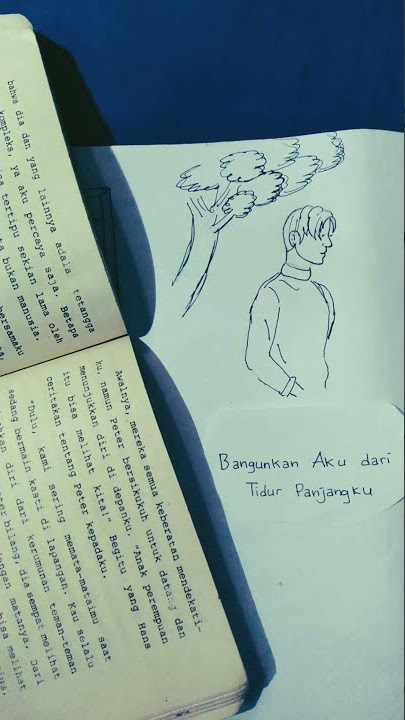 bahwa dia dan yang lainnya adala tetangga
kompleks, ya aku percaya saja. Betapa
tertipu sekian lama oleh
bukan manusia.
bersamaku
Awalnya, mereka semua keberatan mendekati-
ku, namun Peter bersikukuh untuk datang dan
menunjukkan diri di depanku. "Anak perempuan
itu bisa melihat kita!" Begitu yang Hans
ceritakan tentang Peter kepadaku.
"Dulu, kami sering memata-mataimu saat
sedang bermain kasti di lapangan. Kau selalu
diri dari kerumunan teman-teman
bilang, dia sempat melihat
dengan matanya. Dari
bisa melihat
Bangunkan Aku dari
Tidur Panjangku